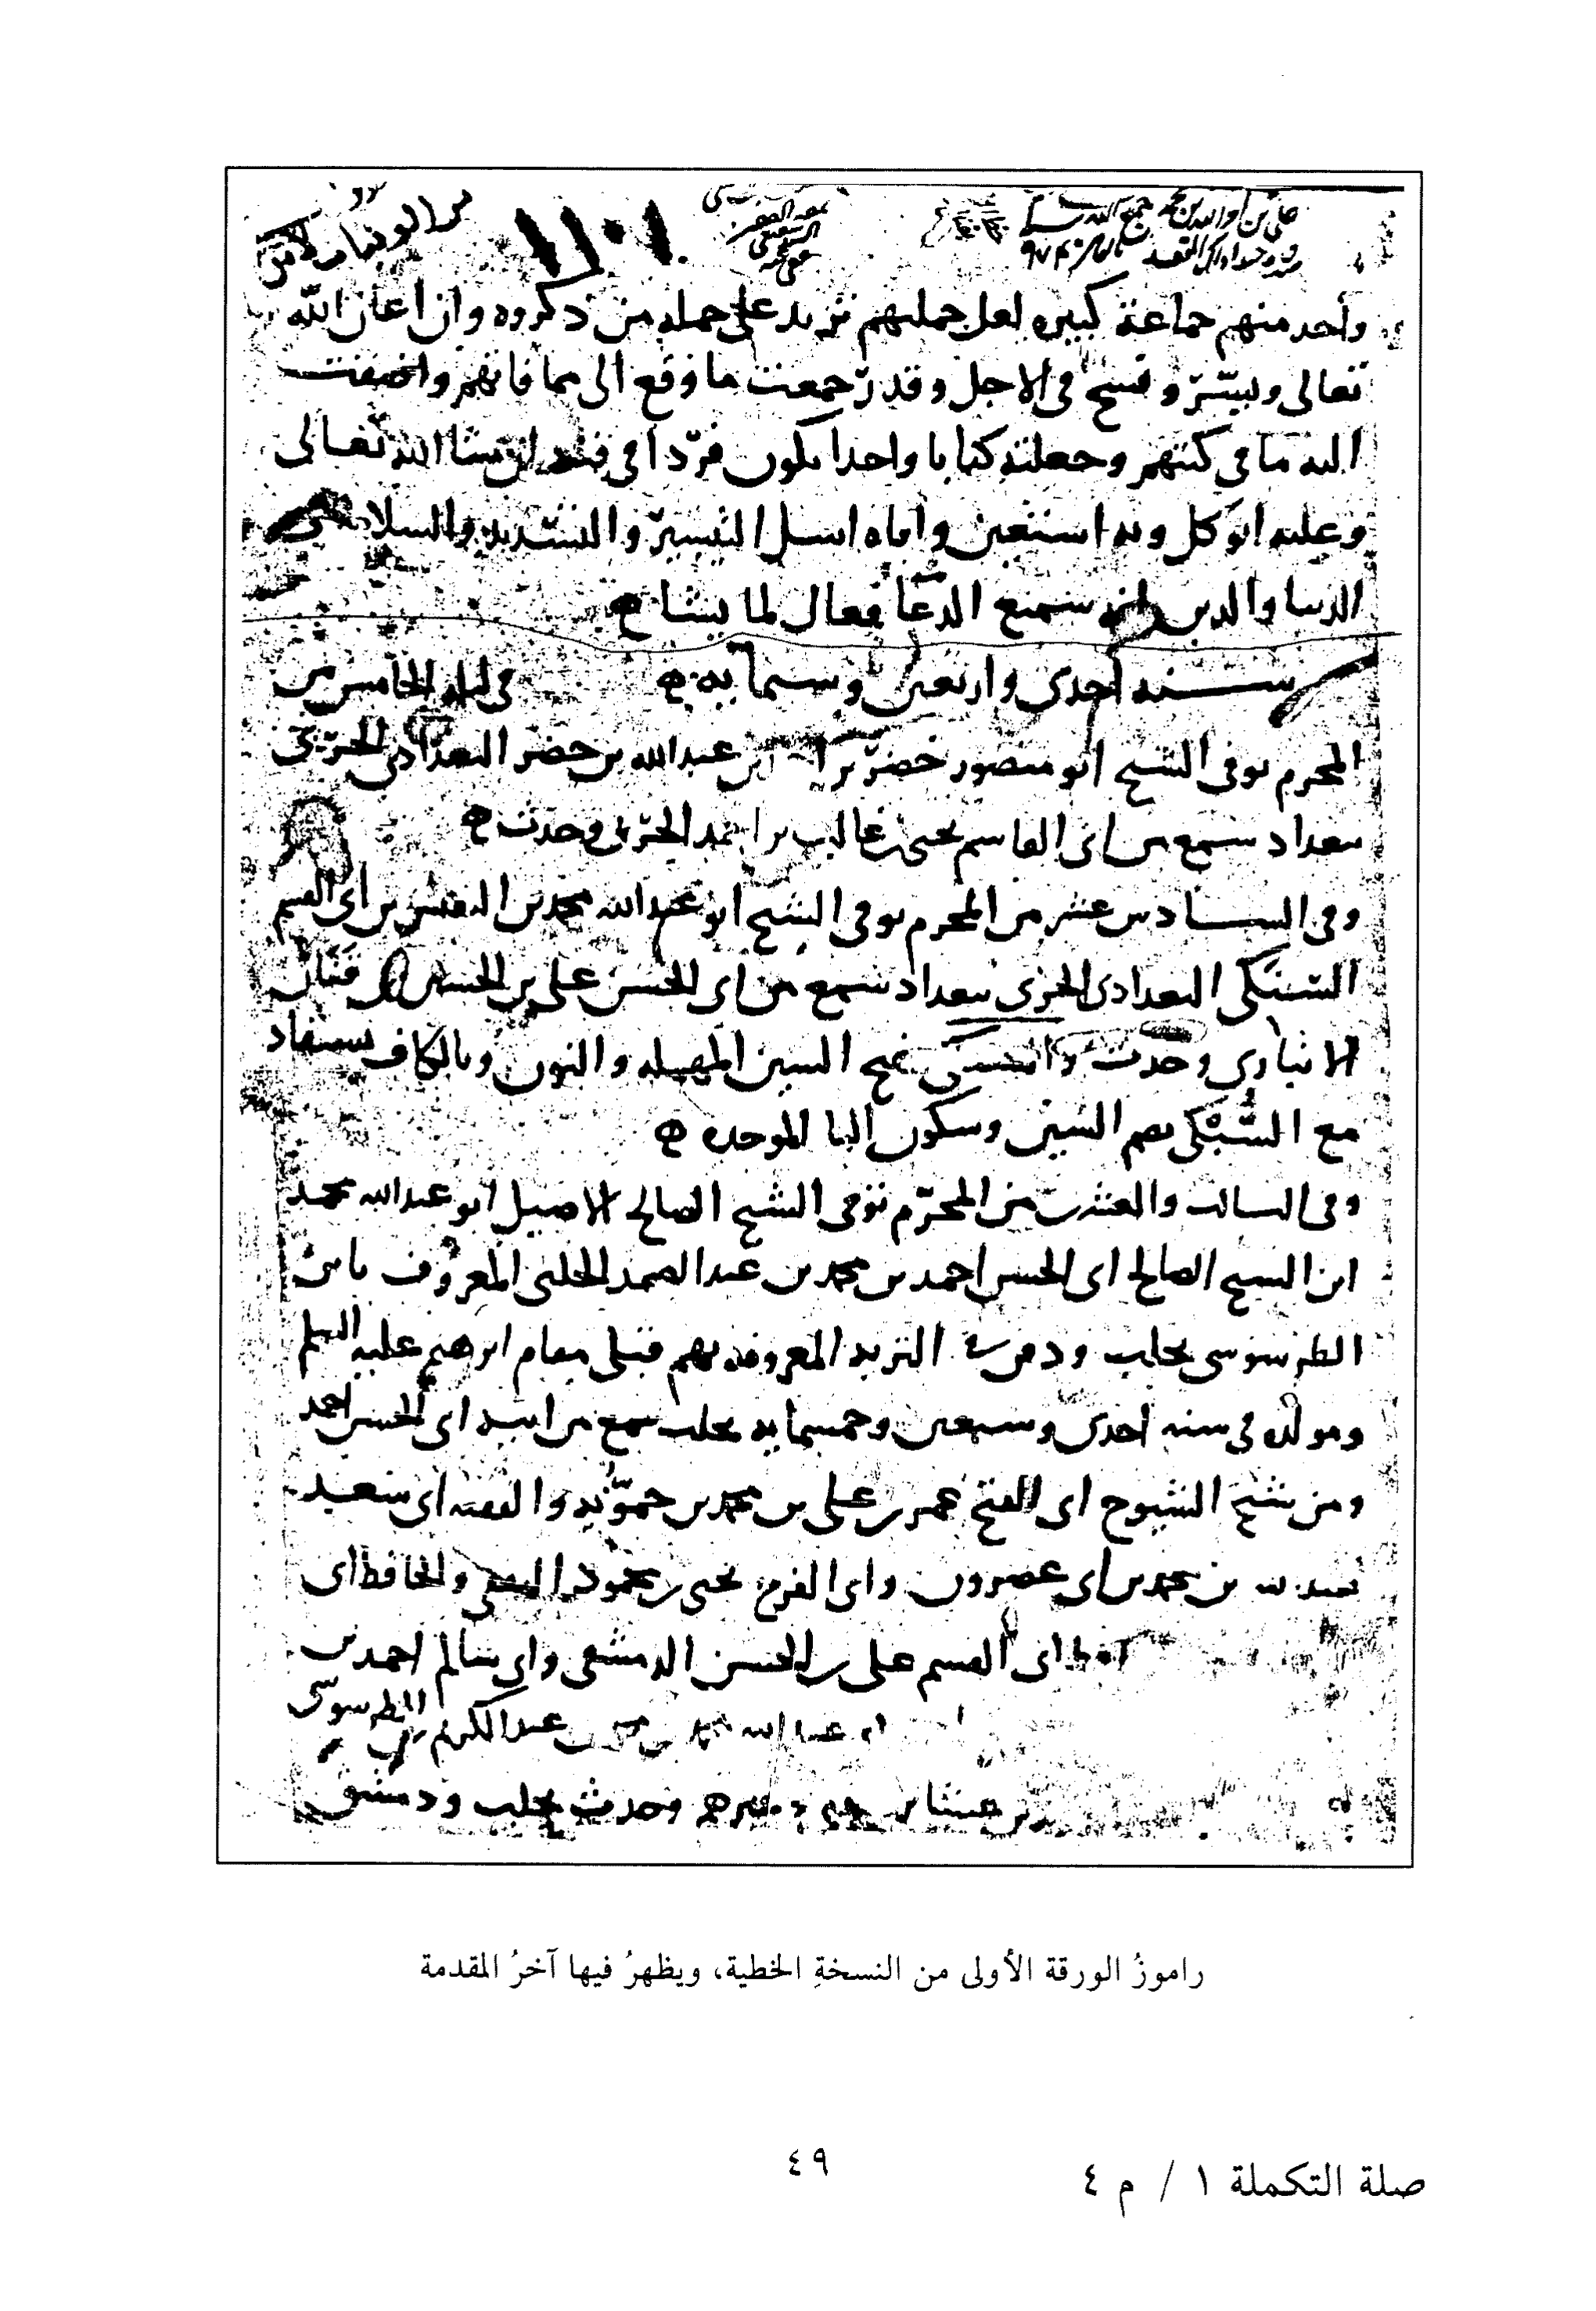 وأحد منهم جماعة كبيره لعل جملتهم تزيد على جمله من ذكروه وان اعان الله
تعالى ويسّر وفسح في الاجل وقدر جمعت ما وقع الى مما فاتهم واضفت
اليه ما في كتبهم وجعلته كتابا واحدا يكون فردا في فنه ان شا الله تعالى
وعليه اتوكل وبه استعين واياه اسل التيسير والتسديد والسلامه في
الدنيا والدين انه سميع الدعا فعال لما يشا
سنه احدى واربعين وستمايه في ليله الخامس من
المحرم توفي الشيخ ابو منصور خضر بن ابن عبد الله بن خضر البغدادي الحربي
ببغداد سمع من ابي القاسم يحيى بن غالب بن احمد الحربي وحدث
وفي السادس عشر من المحرم توفي الشيخ ابو عبد الله محمد بن النفيس بن ابي القسم
السنكي البغدادي الحربي ببغداد سمع من ابي الحسن علي بن الحسين بن قنان
الانباري وحدث والسنكي بفتح السين المهمله والنون وبالكاف يستفاد
مع السُّبْكي بضم السين وسكون البا الموحده
وفي الثالث والعشرين من المحرّم توفي الشيخ الصالح الاصيل ابو عبد الله محمد
ابن الشيخ الصالح ابي الحسن احمد بن محمد بن عبد الصمد الحلبي المعروف بابن
الطرسوسي بحلب ودفن بالتربه المعروفه بهم قبلي مقام ابرهيم عليه السلم
ومولده في سنه احدى وسبعين وخمسمايه بحلب سمع من ابيه ابي الحسن احمد
ومن شيخ الشيوخ ابي الفتح عمر بن علي بن محمد بن حمّويه والفقيه ابي سعيد
عبد الله بن محمد بن ابي عصرون وابي الفرج يحيى بن محمود الثقفي والحافظ ابي
ابي القسم علي بن الحسن الدمشقي وابي سالم احمد بن
عبد الله عبد الكريم الطرسوسي
وغيرهم وحدث بحلب ودمشق
راموزُ الورقة الأولى من النسخةِ الخطية، ويظهرُ فيها آخرُ المقدمة
٤٩
صلة التكملة ١ / م ٤